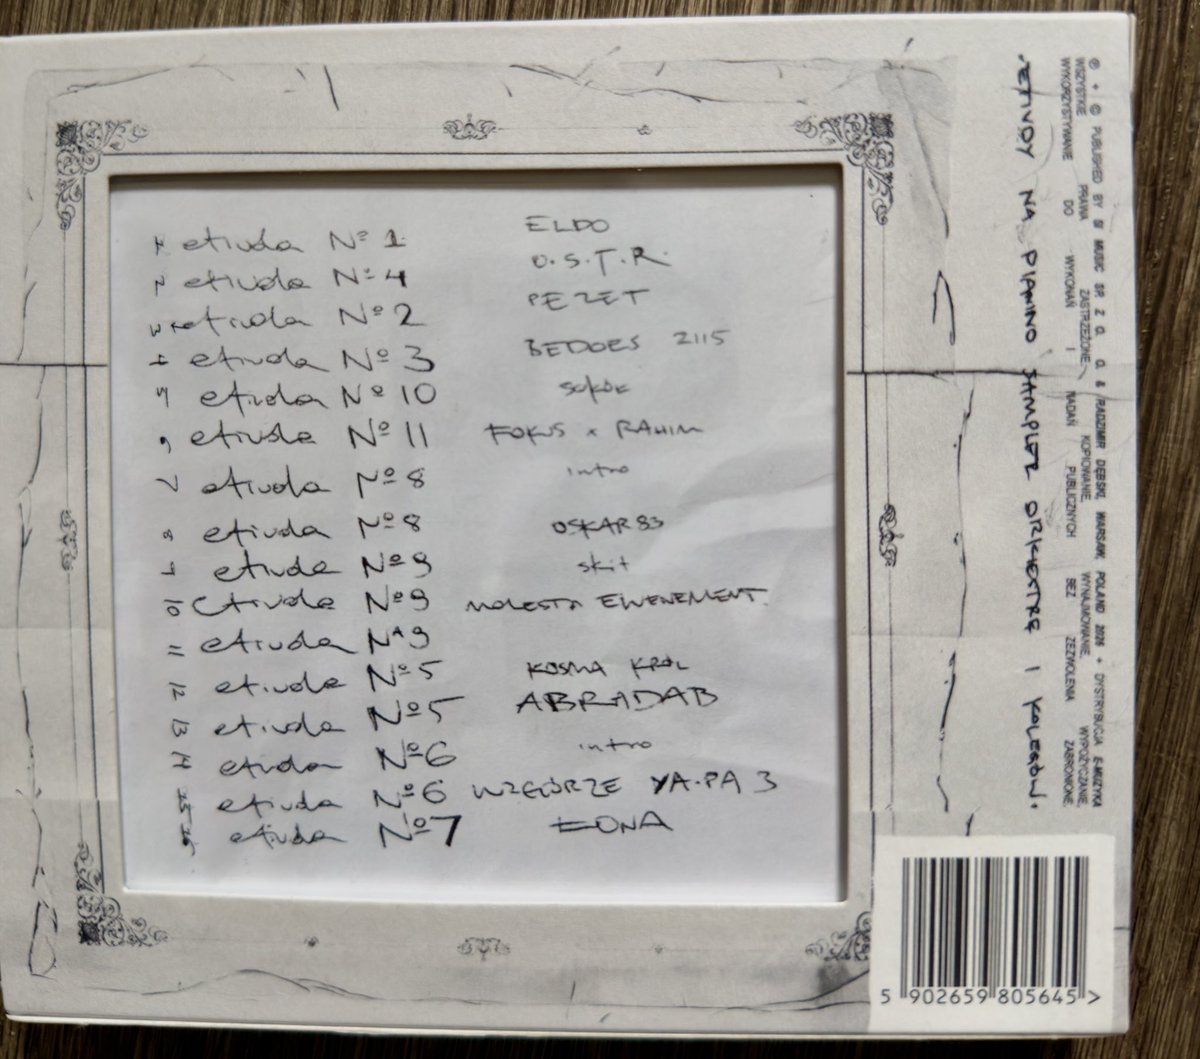 1 etiuda Nº 1 ELDO
2 etiuda Nº 4 O.S.T.R.
3 etiuda Nº 2 PEZET
4 etiuda Nº 3 BEDOES 2115
5 etiuda Nº 10 sokół
6 etiuda Nº 11 FOKUS x RAHIM
7 etiuda Nº 8 intro
8 etiuda Nº 8 OSKAR83
9 etiuda Nº 9 skit
10 etiuda Nº 9 MOLESTA EWENEMENT
11 etiuda Nº 9
12 etiuda Nº 5 KOSMA KRÓL
13 etiuda Nº 5 ABRADAB
14 etiuda Nº 6 intro
15 etiuda Nº 6 WZGÓRZE YA-PA 3
16 etiuda Nº 7 EDNA
ETIUDY NA PIANINO SAMPLER ORKIESTRĘ I KOLEGÓW.
℗ + © PUBLISHED BY SI MUSIC SP. Z O. O. & RADZIMIR DĘBSKI, WARSAW, POLAND 2026 + DYSTRYBUCJA E-MUZYKA
WSZYSTKIE PRAWA ZASTRZEŻONE, KOPIOWANIE, WYNAJMOWANIE, WYPOŻYCZANIE,
WYKORZYSTYWANIE DO WYKONAŃ I NADAŃ PUBLICZNYCH BEZ ZEZWOLENIA ZABRONIONE.
5 902659 805645 >